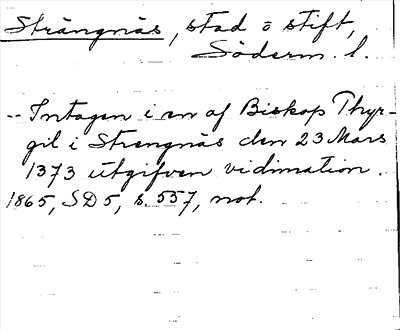 Strängnäs, stad o stift,
Söderm. l.
-- Intagen i en af Biskop Thyr-
gil i Strengnäs den 23 Mars
1373 utgifven vidimation.
1865, SD 5, s. 557, not.